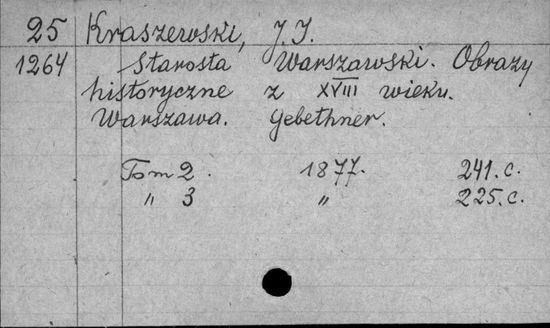 25 Kraszewski, J.I.
1264 Starosta Warszawski. Obrazy
historyczne z XVIII wieku.
Warszawa. Gebethner.
Tom 2. 1877. 241.c.
" 3 " 225.c.